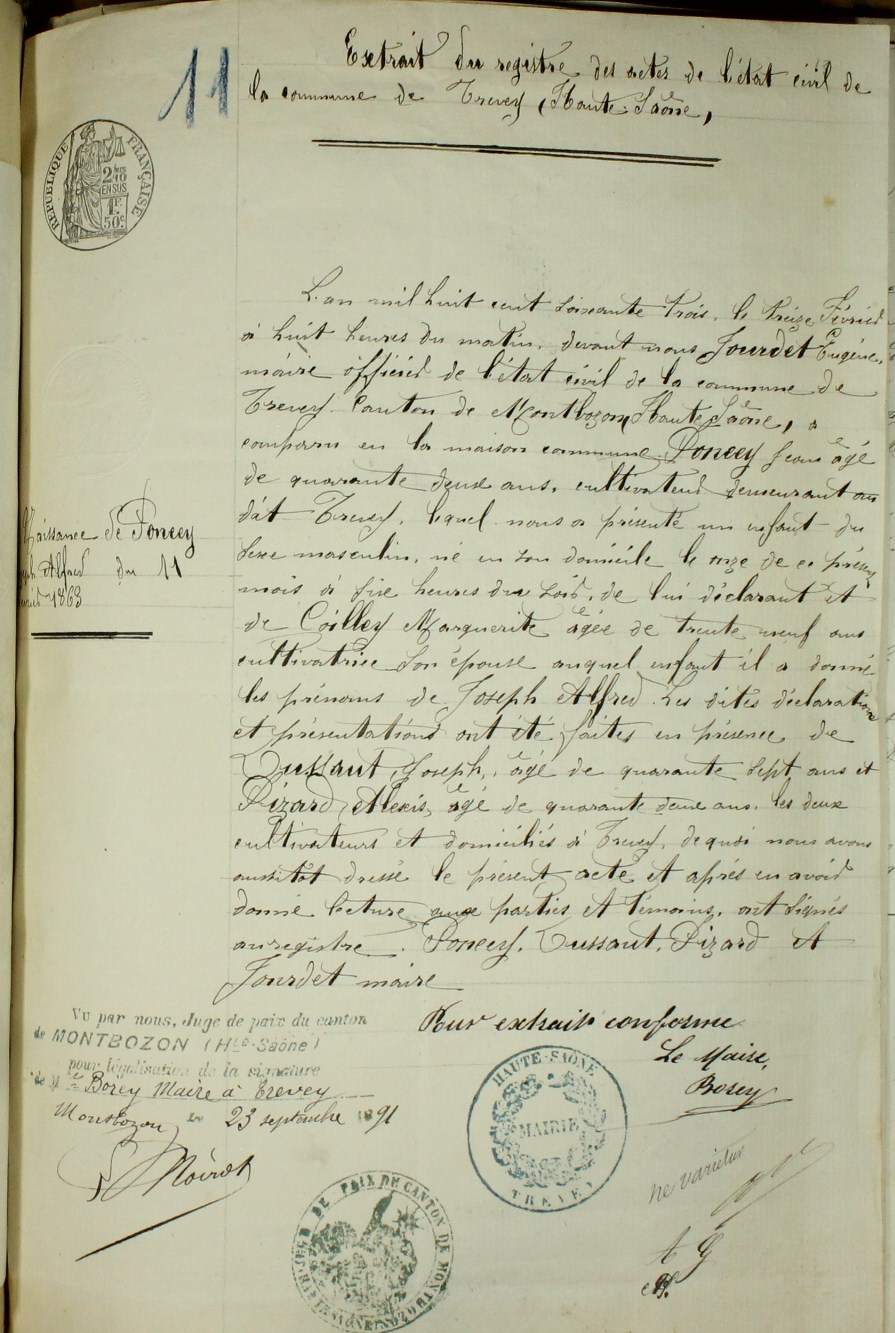 11
Extrait du registre des actes de l'état civil de
la commune de Trevey (Haute-Saône,
RÉPUBLIQUE FRANÇAISE
2/10
EN SUS
1F
50c
L'an mil huit cent soixante trois, le treize Février
à huit heures du matin, devant nous Jourdet Eugène,
maire officier de l'état civil de la commune de
Trevey. Canton de Montbozon, (Haute Saône, a
comparu en la maison commune Poncey Jean âgé
de quarante deux ans, cultivateur demeurant au
dit Trevey, lequel nous a présenté un enfant du
sexe masculin, né en son domicile le onze de ce présent
mois à six heures du soir, de lui déclarant et
de Coilley Marguerite âgée de trente neuf ans
cultivatrice son épouse auquel enfant il a donné
les prénoms de Joseph Alfred. Les dites déclaration
et présentations ont été faites en présence de
Cussaut, Joseph, âgé de quarante sept ans et
Pizard, Alexis, âgé de quarante deux ans, les deux
cultivateurs et domiciliés à Trevey, de quoi nous avons
aussitôt dressé le présent acte et après en avoir
donné lecture aux parties et témoins, ont signés
au registre. Poncey. Cussaut. Pizard et
Jourdet maire
Naissance de Poncey
Joseph Alfred du 11
février 1863
Pour extrait conforme
Le Maire,
Borey
Vu par nous, Juge de paix du canton
de MONTBOZON (Hte-Saône)
pour légalisation de la signature
de M. Borey Maire à Trevey
Montbozon, le 23 septembre 1891
Noirot
HAUTE-SAÔNE
MAIRIE
TREVEY
JUGE DE PAIX DE CANTON DE MONTBOZON
HAUTE SAÔNE
ne varietur